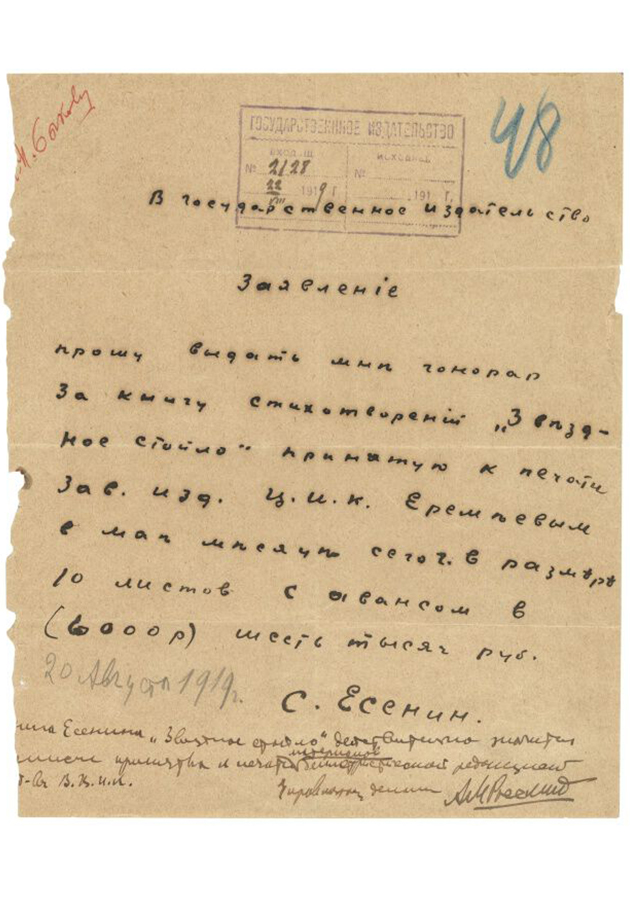 48
ГОСУДАРСТВЕННОЕ ИЗДАТЕЛЬСТВО
ВХОДЯЩ. ИСХОДЯЩ.
№ 2128 №
22 VIII 1919 Г. 191 Г.
В государственное издательство
Заявленіе
прошу выдать мнѣ гонорар
За книгу стихотвореній „Звѣзд-
ное стойло" принятую к печати
Зав. изд. Ц.И.К. Еремѣевым
в маѣ мѣсяцѣ сего г. в размѣрѣ
10 листов с авансом в
(6000р) шесть тысяч руб.
20 Августа 1919г.
С. Есенин.
Есенина „Звездное стойло" действительно значится
редакцией
В.Ц.И.К.
Управляющ делами